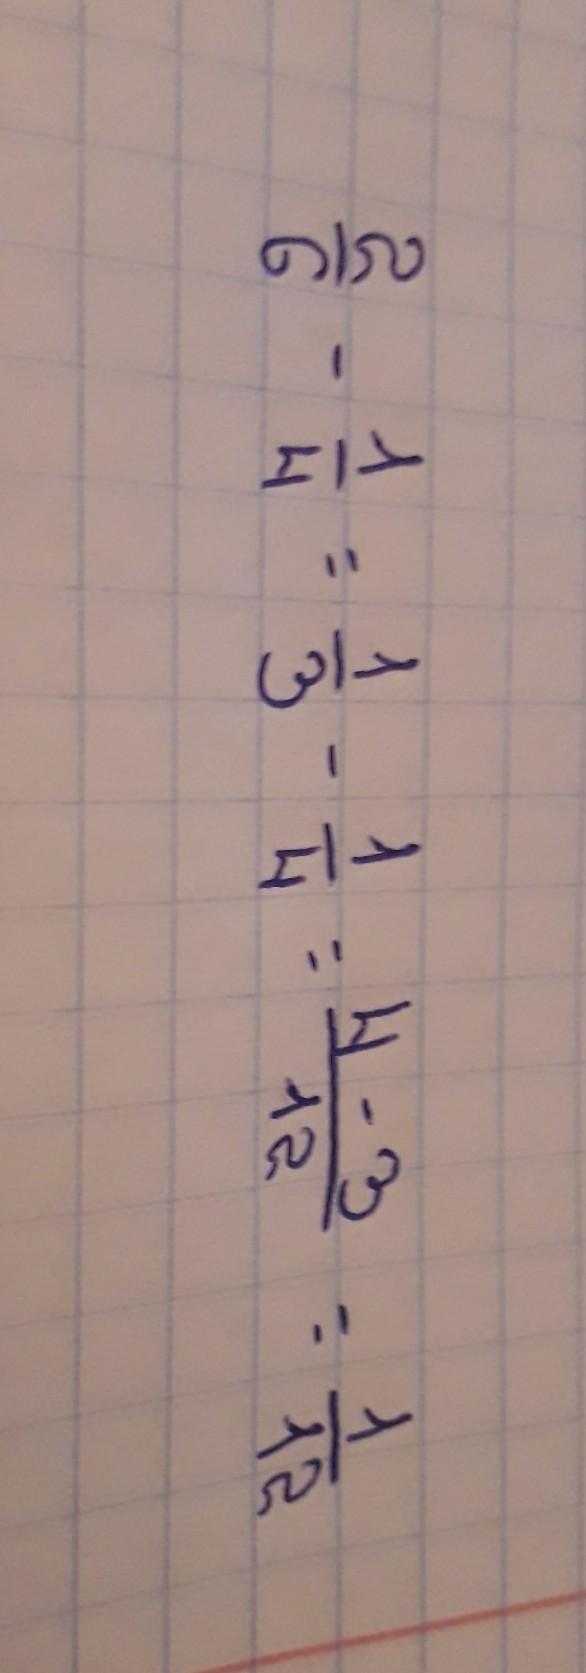 2/6 - 1/4 = 1/3 - 1/4 = (4 - 3)/12 = 1/12